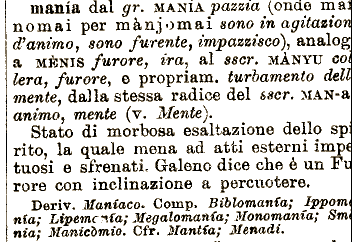 manía dal gr. MANÍA pazzia (onde mai
nomai per mànjomai sono in agitazion
d'animo, sono furente, impazzisco), analog
a MÊNIS furore, ira, al sscr. MÀNYU col
lera, furore, e propriam. turbamento dell
mente, dalla stessa radice del sscr. MAN-a
animo, mente (v. Mente).
Stato di morbosa esaltazione dello spi
rito, la quale mena ad atti esterni impe
tuosi e sfrenati. Galeno dice che è un Fu
rore con inclinazione a percuotere.
Deriv. Maníaco. Comp. Biblomanía; Ippoma
nía; Lipemanía; Megalomanía; Monomanía; Sme
nía; Manicòmio. Cfr. Mantía; Menadi.